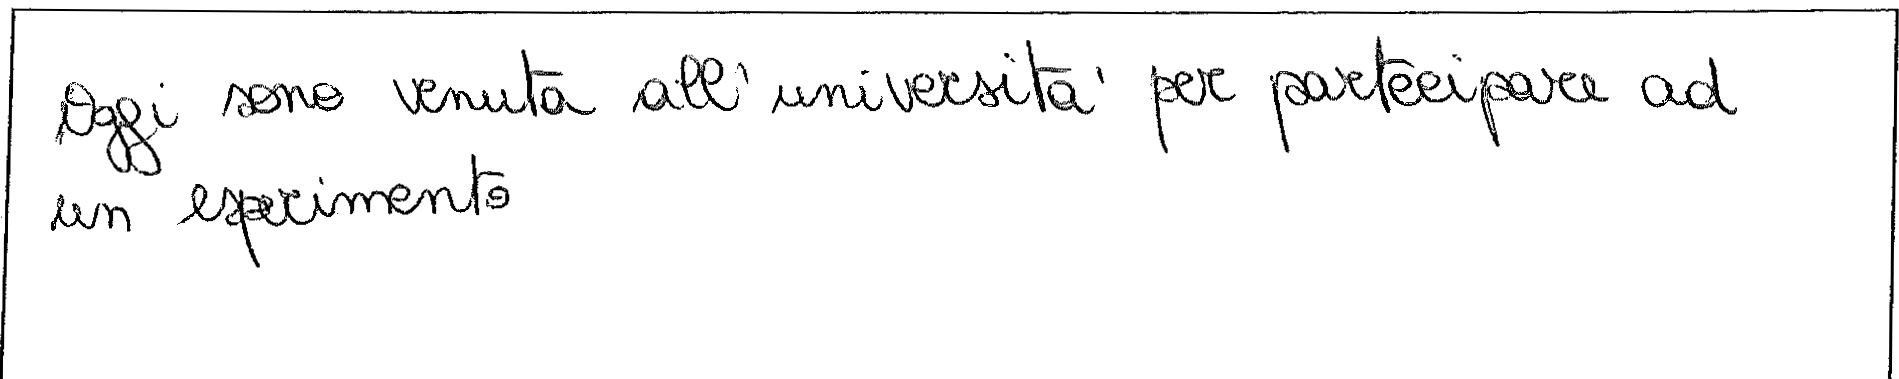 Oggi sono venuta all'università per partecipare ad
un esperimento